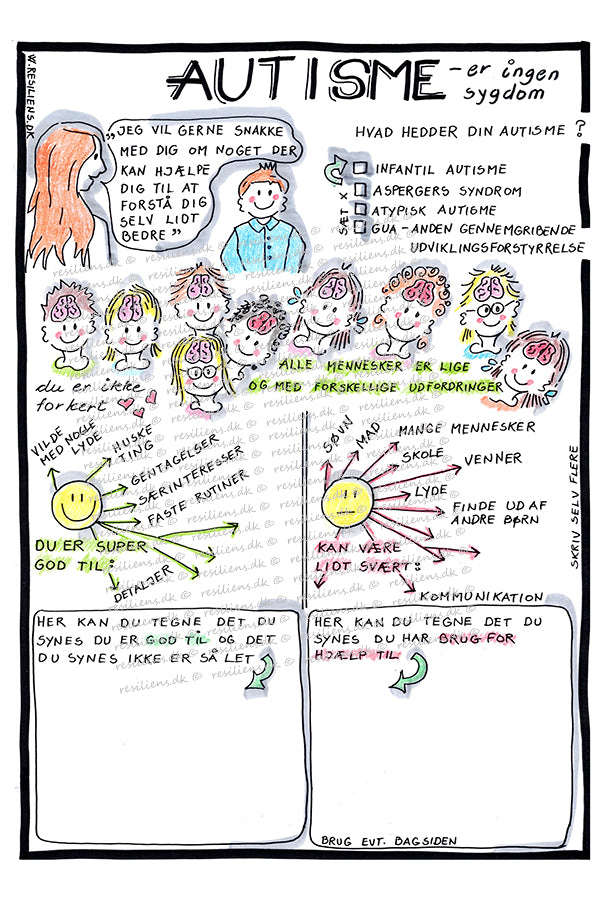 W.RESILIENS.DK
AUTISME
- er ingen
sygdom
"JEG VIL GERNE SNAKKE
MED DIG OM NOGET DER
KAN HJÆLPE
DIG TIL AT
FORSTÅ DIG
SELV LIDT
BEDRE"
HVAD HEDDER DIN AUTISME?
SÆT X
INFANTIL AUTISME
ASPERGERS SYNDROM
ATYPISK AUTISME
GUA - ANDEN GENNEMGRIBENDE
UDVIKLINGSFORSTYRRELSE
ALLE MENNESKER ER LIGE
OG MED FORSKELLIGE UDFORDRINGER
du er ikke
forkert
VILDE
MED NOGLE
LYDE
HUSKE
TING
GENTAGELSER
SÆRINTERESSER
FASTE RUTINER
DU ER SUPER
GOD TIL:
DETALJER
SØVN
MAD
MANGE MENNESKER
SKOLE
VENNER
LYDE
FINDE UD AF
ANDRE BØRN
KAN VÆRE
LIDT SVÆRT:
KOMMUNIKATION
SKRIV SELV FLERE
HER KAN DU TEGNE DET DU
SYNES DU ER GOD TIL OG DET
DU SYNES IKKE ER SÅ LET
HER KAN DU TEGNE DET DU
SYNES DU HAR BRUG FOR
HJÆLP TIL
BRUG EVT. BAGSIDEN
resiliens.dk ©